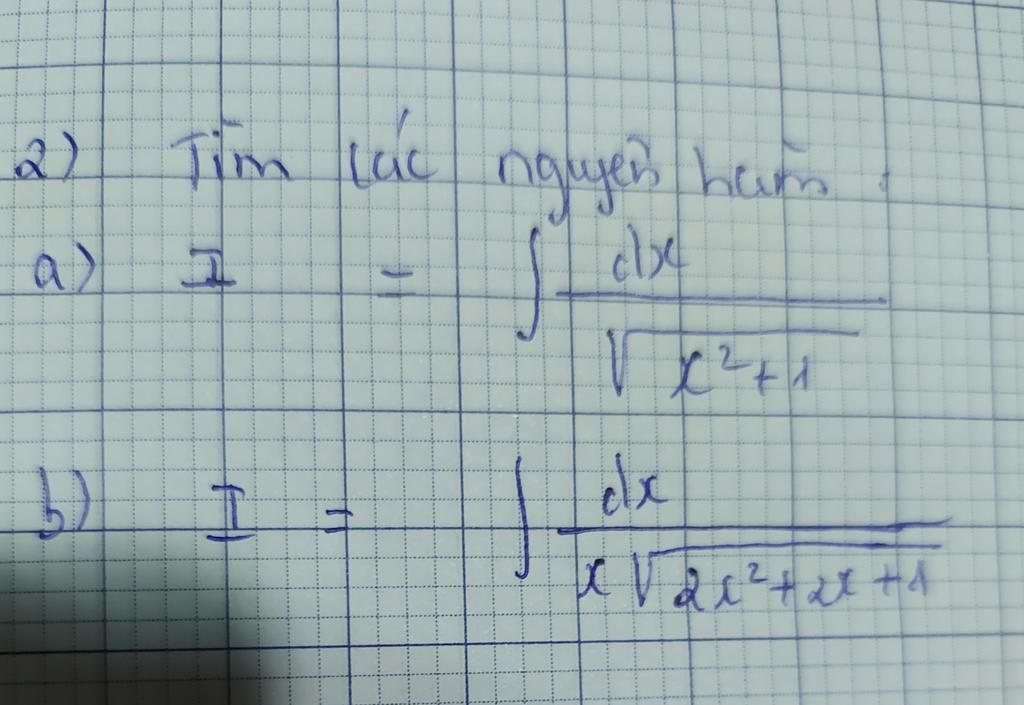 2) Tìm các nguyên hàm :
a) I = ∫ dx / √(x²+1)
b) I = ∫ dx / (x√(2x²+2x+1))